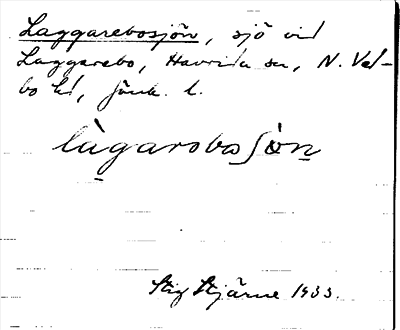 Laggarebosjön, sjö vid
Laggarebo, Havrida sn, N. Vel-
bo hd, Jönk. l.
lágarobosjön
Stig Stjärne 1933.